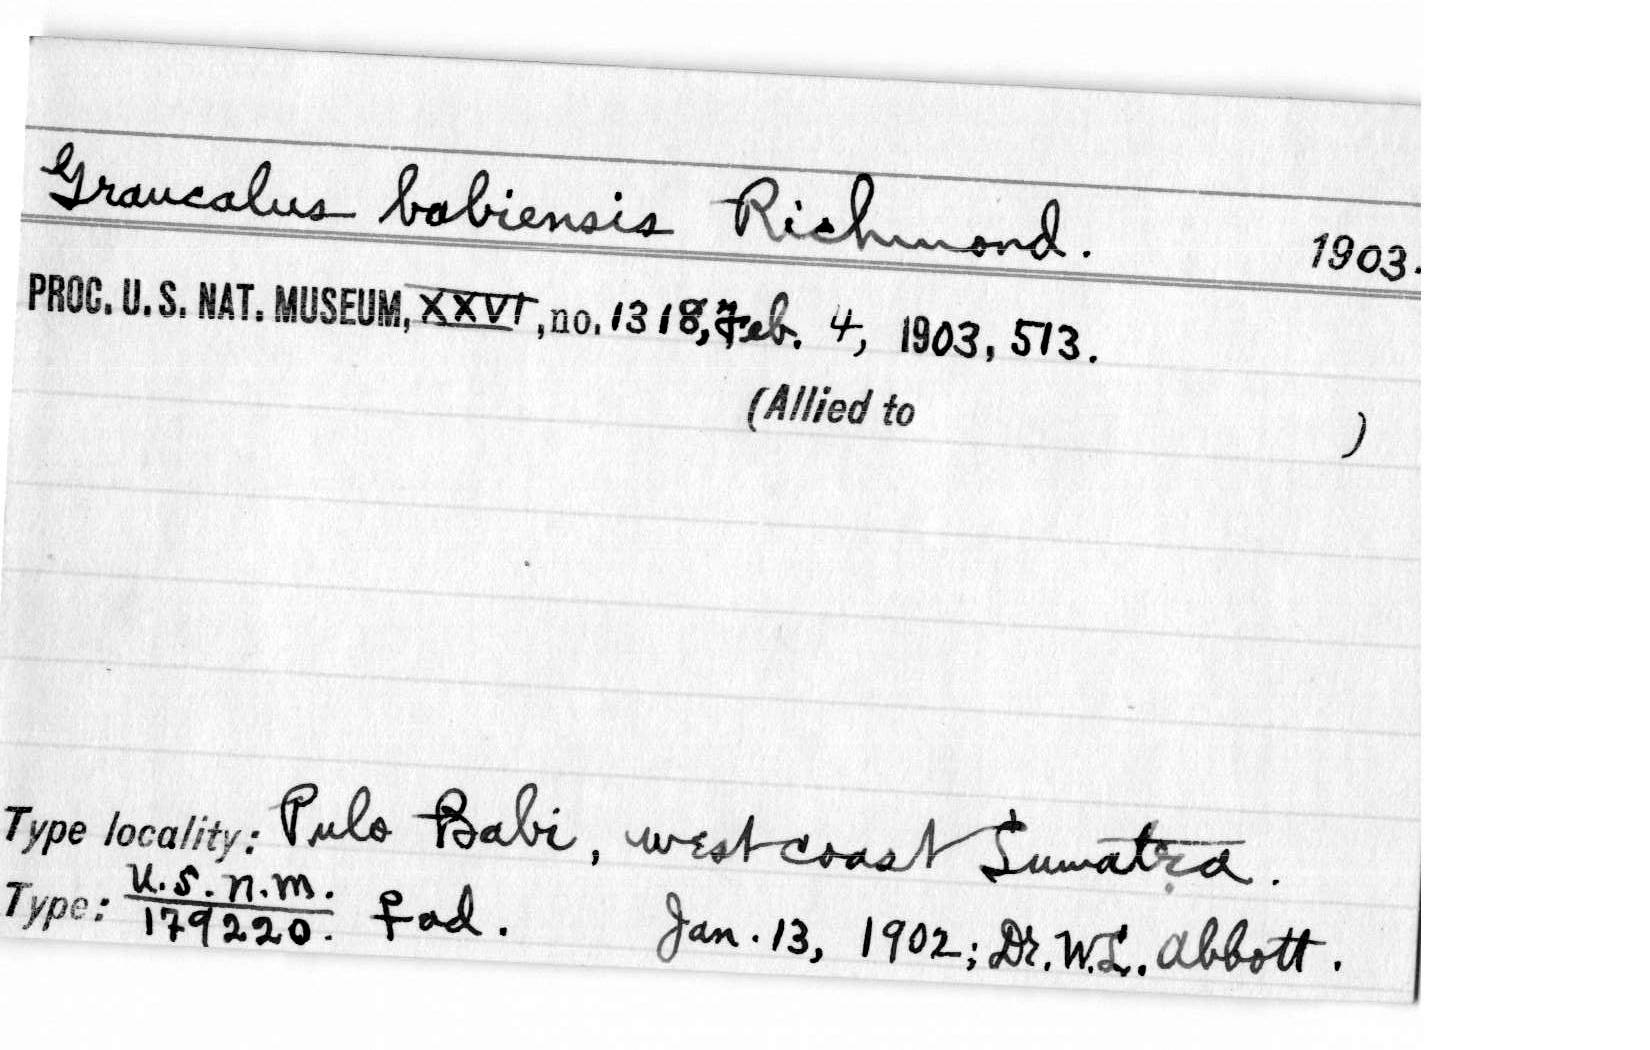 Graucalus babiensis Richmond. 1903.
PROC. U. S. NAT. MUSEUM, XXVI, no. 1318, Feb. 4, 1903, 513.
(Allied to )
Type locality: Pulo Babi, west coast Sumatra.
Type: U.S.N.M. 179220. ♀ ad. Jan. 13, 1902; Dr. W.L. Abbott.